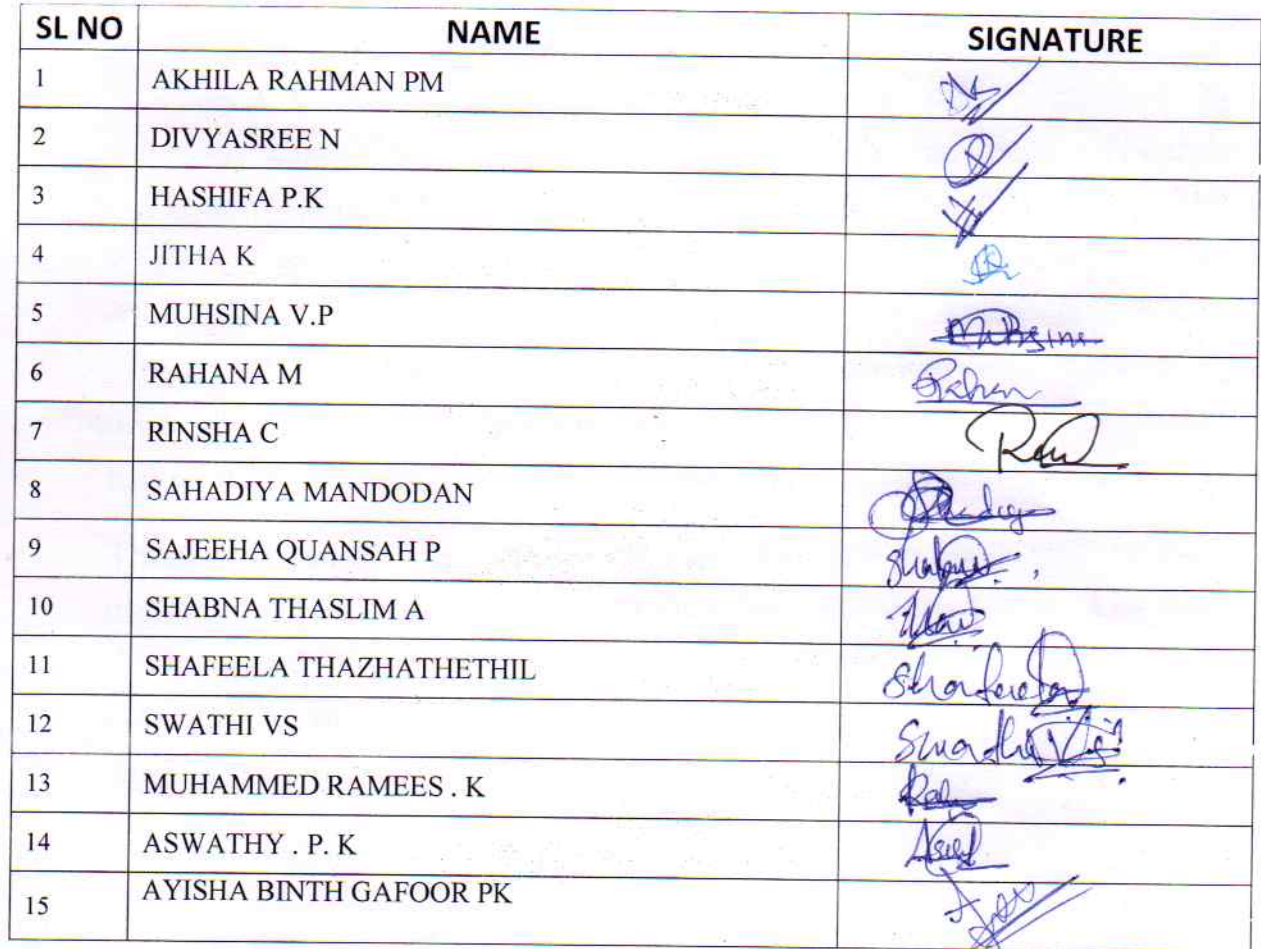 SL NO NAME SIGNATURE
1 AKHILA RAHMAN PM
2 DIVYASREE N
3 HASHIFA P.K
4 JITHA K
5 MUHSINA V.P Muhsina
6 RAHANA M Rahan
7 RINSHA C
8 SAHADIYA MANDODAN
9 SAJEEHA QUANSAH P
10 SHABNA THASLIM A
11 SHAFEELA THAZHATHETHIL Shafeela
12 SWATHI VS Swathi VS
13 MUHAMMED RAMEES . K
14 ASWATHY . P. K
15 AYISHA BINTH GAFOOR PK